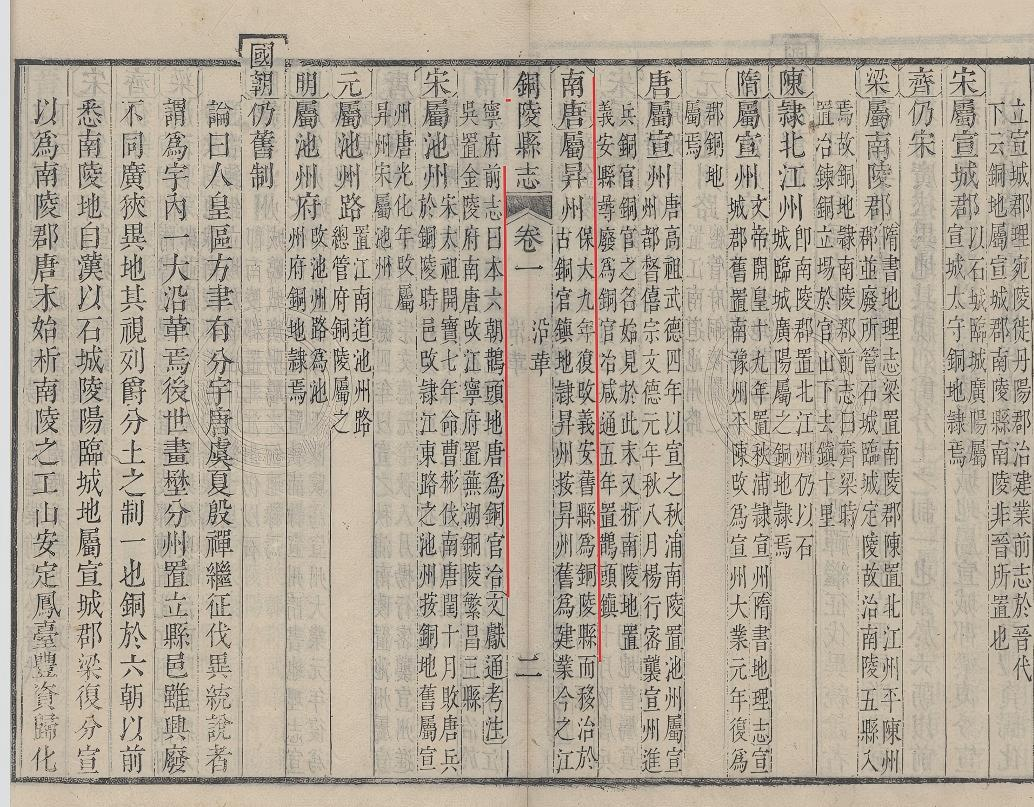 立宣城郡治宛陵徙丹陽郡治建業前志於晉代
下云銅地屬宣城郡南陵縣南陵非晉所置也
宋屬宣城郡以石城臨城廣陽屬
宣城太守銅地隸焉
齊仍宋
梁屬南陵郡隋書地理志梁置南陵郡陳置北江州平陳州
郡並廢所管石城臨城定陵故治南陵五縣入
焉故銅地隸南陵郡前志曰齊梁時
置冶鍊銅立場於官山下去鎮十里
陳隸北江州卽南陵郡置北江州仍以石
城臨城廣陽屬之銅地隸焉
隋屬宣州文帝開皇十九年置秋浦隸宣州隋書地理志宣
城郡舊置南豫州平陳改爲宣州大業元年復爲
郡銅地
屬焉
唐屬宣州唐高祖武德四年以宣之秋浦南陵置池州屬宣
州都督僖宗文德元年秋八月楊行密襲宣州進
兵銅官銅官之名始見於此末又析南陵地置
義安縣尋廢爲銅官冶咸通五年置鵲頭鎮
南唐屬昇州保大九年復改義安舊縣爲銅陵縣而移治於
古銅官鎮地隸昇州按昇州舊爲建業今之江
銅陵縣志 卷一 沿革 二
寧府前志曰本六朝鵲頭地唐爲銅官冶文獻通考注
吳置金陵府南唐改江寧府置蕪湖銅陵繁昌三縣
宋屬池州宋太祖開寶七年命曹彬伐南唐閏十月敗唐兵
於銅陵時邑改隸江東路之池州按銅地舊屬宣
州唐光化年改屬
昇州宋屬池州
元屬池州路置江南道池州路
總管府銅陵屬之
明屬池州府改池州路爲池
州府銅地隸焉
國朝仍舊制
論曰人皇區方聿有分宇唐虞夏殷禪繼征伐異統說者
謂爲宇內一大沿革焉後世畫壄分州置立縣邑雖興廢
不同廣狹異地其視列爵分土之制一也銅於六朝以前
悉南陵地自漢以石城陵陽臨城地屬宣城郡梁復分宣
以爲南陵郡唐末始析南陵之工山安定鳳臺豐資歸化